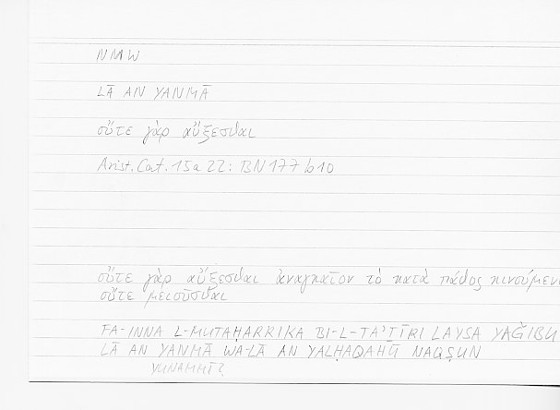 NMW
LĀ AN YANMĀ
οὔτε γὰρ αὔξεσθαι
Arist. Cat. 15a22: BN 177b10
οὔτε γὰρ αὔξεσθαι ἀναγκαῖον τὸ κατὰ πάθος κινούμενο
οὔτε μειοῦσθαι
FA-INNA L-MUTAḤARRIKA BI-L-TAʾṮĪRI LAYSA YAǦIBU
LĀ AN YANMĀ WA-LĀ AN YALḤAQAHŪ NAQṢUN
YUNAMMĪ?